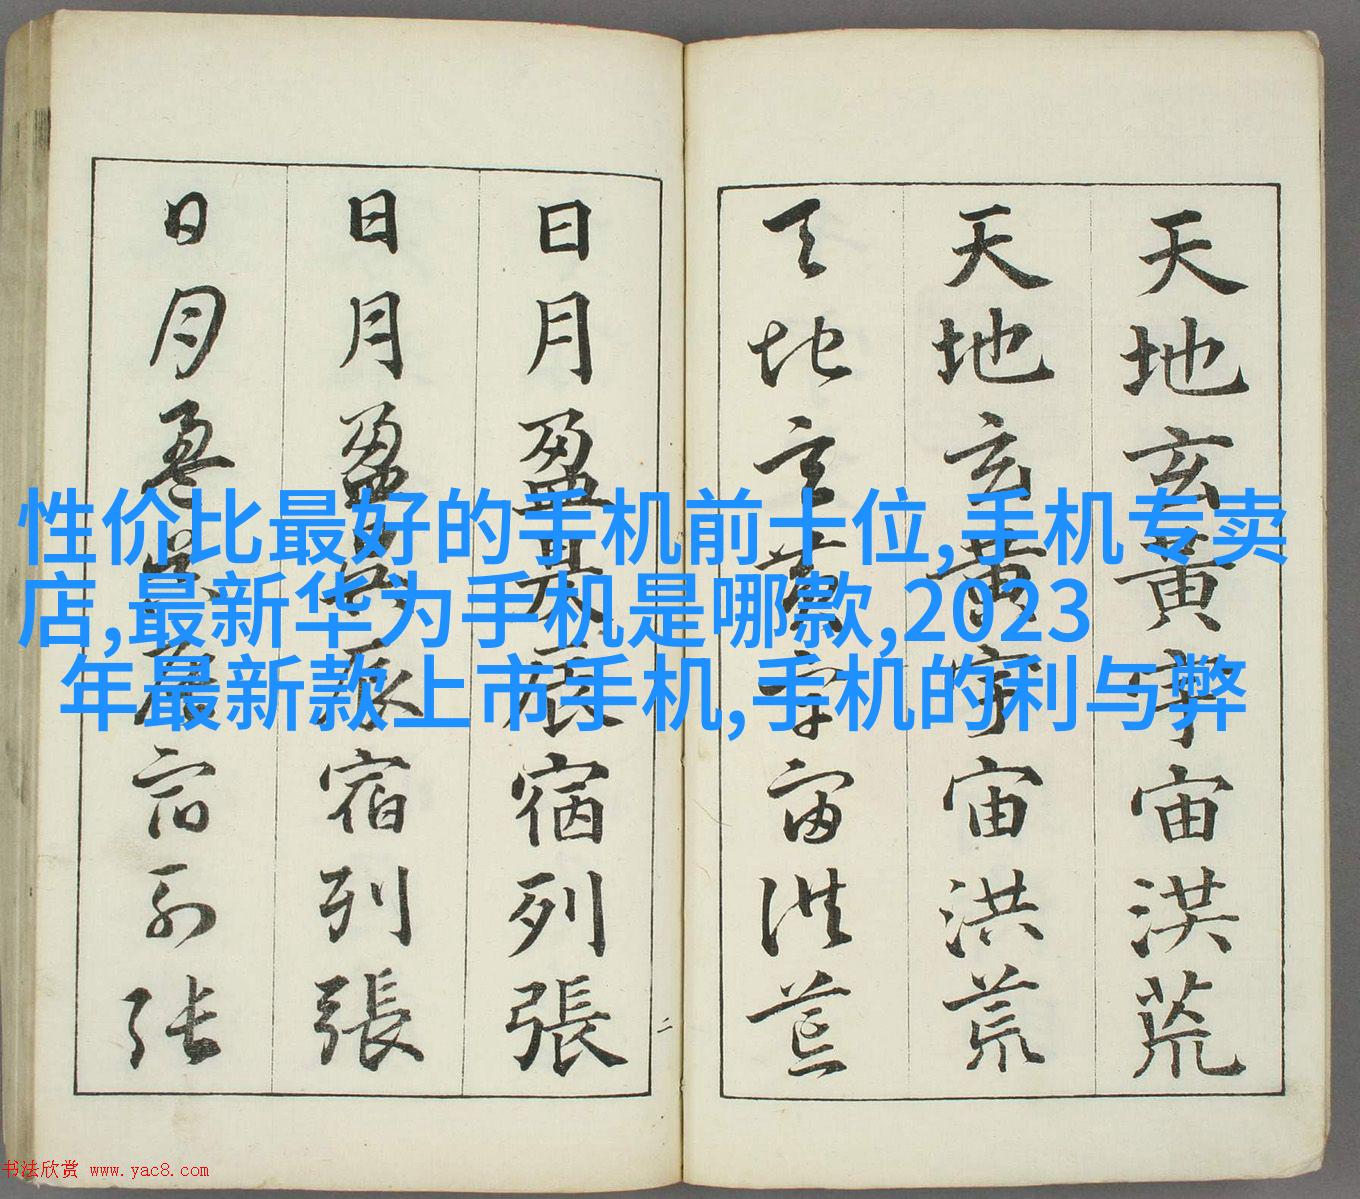 天地玄黃宇宙洪荒
天地玄黃宇宙洪荒
天地玄黃宇宙洪荒
日月盈昃辰宿列張
日月盈昃辰宿列張
日月盈昃辰宿列張
二
性价比最好的手机前十位,手机专卖
店,最新华为手机是哪款,2023
年最新款上市手机,手机的利与弊
书法欣赏 www.yac8.com